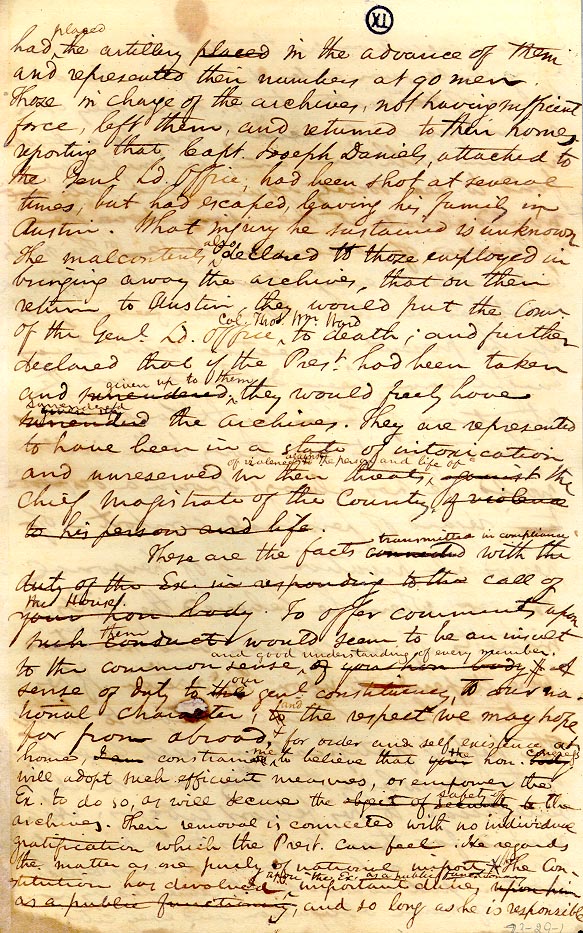 XI
placed
had the artillery placed in the advance of them
and represented their numbers at 90 men
Those in charge of the archives, not having sufficient
force, left them, and returned to their homes
reporting that Capt. Joseph Daniels, attached to
the Genl Ld. Office, had been shot at several
times, but had escaped, leaving his family in
Austin. What injury he sustained is unknown
also
The malcontents declared to those employed in
bringing away the archives, that on their
return to Austin they would put the Com.
Col. Thos. Wm. Ward
of the Genl. Ld. Office, to death; and further
declared that if the Prest. had been taken
given up to them
and surrendered, they would freely have
surrendered
the archives. They are represented
to have been in a state of intoxication
of violence against the person and life of
and unreserved in their threats, against the
chief magistrate of the County, of violence
to his person and life.
transmitted in compliance
These are the facts connected with the
duty of the Ex. in responding to the call of
the House.
your hon body. To offer comments upon
them
such conduct would seem to be an insult
and good understanding of every member.
to the common sense, of your hon body. A
our
sense of duty to the genl constituency, to our na-
and
tional character, to the respect we may hope
for from abroad, for order and self existence at
me the congress
home, I am constrained to believe that your hon. body
will adopt such efficient measures, or empower the
safety of
Ex. to do so, as will secure the object of the
archives. Their removal is connected with no individual
gratification which the Prest. can feel. He regards
the matter as one purely of national import. The Con-
upon the Ex. as a public functionary
stitution has devolved important duties upon him
as a public functionary, and so long as he is responsible